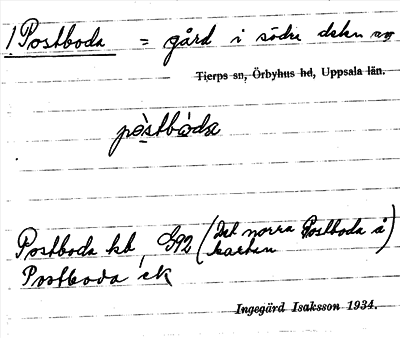 1) Postboda = gård i södra delen av
Tierps sn, Örbyhus hd, Uppsala län.
pòstbòda
Postboda kb G92 (Det norra Postboda å karten)
Postboda ek
Ingegärd Isaksson 1934.